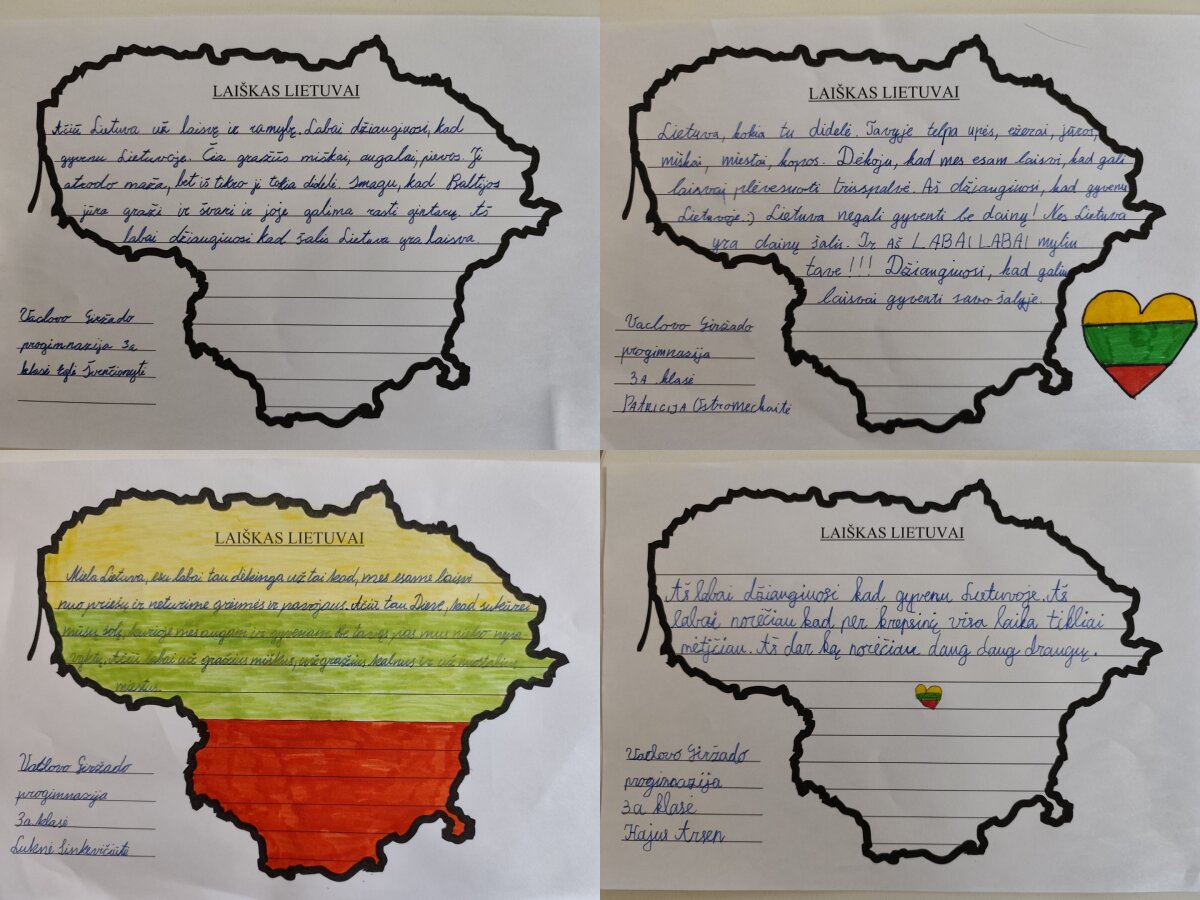 LAIŠKAS LIETUVAI
Ačiū Lietuva už laisvę ir ramybę. Labai džiauginuosi, kad
gyvenu Lietuvoje. Čia gražūs miškai, augalai, pievos. Ji
atrodo maža, bet iš tikro ji tokia didelė. Smagu, kad Baltijos
jūra graži ir švari ir joje galima rasti gintarų. Aš
labai džiauginuosi kad šalis Lietuva yra laisva.
Vaclovo Giržado
progimnazija 3a
klasė Eglė Švenčionytė
LAIŠKAS LIETUVAI
Lietuva, kokia tu didelė. Tavyje telpa upės, ežerai, jūros,
miškai, miestai, kopos. Dėkoju, kad mes esam laisvi, kad gali
laisvai plėvesuoti trisspalvė. Aš džiangiuosi, kad gyvenu
Lietuvoje.:) Lietuva negali gyventi be dainų! Nes Lietuva
yra dainų šalis. Ir Aš LABAI LABAI myliu
tave!!! Džiangiuosi, kad galiu
laisvai gyventi savo šalyje.
Vaclovo Giržado
progimnazija
3A klasė
PATRICIJA Ostromeckaitė
LAIŠKAS LIETUVAI
Miela Lietuva, esu labai tau dėkinga už tai kad, mes esame laisvi
nuo priešų ir neturime grėsmės ir pavojaus. Ačiū tau Dieve, kad sukūrei
mūsų šalį, kurioje mes augam ir gyvenam. Be tavęs pas mus nieko
Ačiū labai už gražius miškus, už gražius kalnus ir už nuostabius
miestus.
Vaclovo Giržado
progimnazija
3a klasė
Luknė Sinkevičiūtė
LAIŠKAS LIETUVAI
Aš labai džiangiuosi kad gyvenu Lietuvoje. Aš
labai norėčiau kad per krepsinį visa laika tikliai
mėtįčiau. Aš dar ką norėčiau daug daug draugų.
Vaclovo Giržado
progimnazija
3a klasė
Kajus Arsen